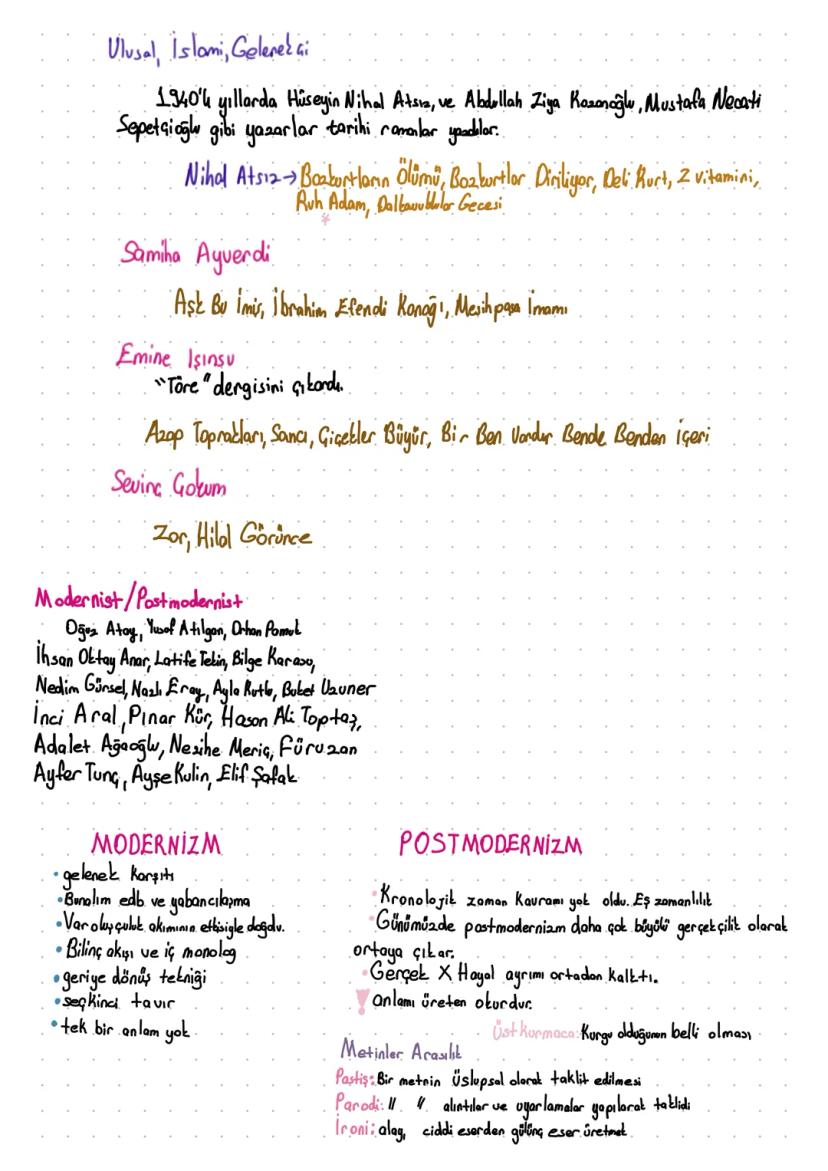 Ulusal, İslami, Gelenekçi
1940'lı yıllarda Hüseyin Nihal Atsız, ve Abdullah Ziya Kozanoğlu, Mustafa Necati
Sepetçioğlu gibi yazarlar tarihi romanlar yazdılar.
Nihal Atsız → Bozkurtların Ölümü, Bozkurtlar Diriliyor, Deli Kurt, Z vitamini,
Ruh Adam, Dalkavuklar Gecesi
*
Samiha Ayverdi
Aşk Bu İmiş, İbrahim Efendi Konağı, Mesihpaşa İmamı
Emine Işınsu
"Töre" dergisini çıkardı.
Azap Toprakları, Sancı, Çiçekler Büyür, Bir Ben Vardır Bende Benden İçeri
Sevinç Çokum
Zor, Hilal Görünce
Modernist/Postmodernist
Oğuz Atay, Yusuf Atılgan, Orhan Pamuk
İhsan Oktay Anar, Latife Tekin, Bilge Karasu,
Nedim Gürsel, Nazlı Eray, Ayla Kutlu, Buket Uzuner
İnci Aral, Pınar Kür, Hasan Ali Toptaş,
Adalet Ağaoğlu, Nezihe Meriç, Füruzan
Ayfer Tunç, Ayşe Kulin, Elif Şafak
MODERNİZM
• gelenek karşıtı
• Bunalım edb. ve yabancılaşma
• Varoluşçuluk akımının etkisiyle doğdu.
• Bilinç akışı ve iç monolog
• geriye dönüş tekniği
• seçkinci tavır
• tek bir anlam yok
POSTMODERNİZM
• Kronolojik zaman kavramı yok oldu. Eş zamanlılık
• Günümüzde postmodernizm daha çok büyülü gerçekçilik olarak
ortaya çıkar.
• Gerçek X Hayal ayrımı ortadan kalktı.
! anlamı üreten okurdur.
Üstkurmaca: Kurgu olduğunun belli olması
Metinler Arasılık
Pastiş: Bir metnin üslupsal olarak taklit edilmesi
Parodi: " " alıntılar ve uyarlamalar yapılarak taklidi
İroni: alay, ciddi eserden gülünç eser üretmek